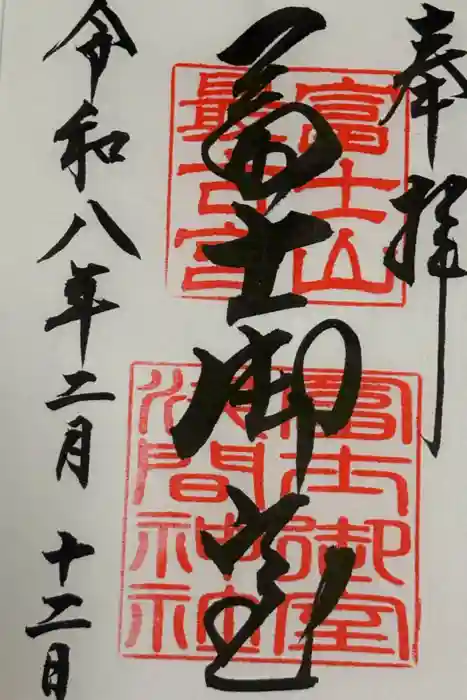 奉拝
富士御室
富士山
最古宮
冨士御室
浅間神社
令和八年二月十二日